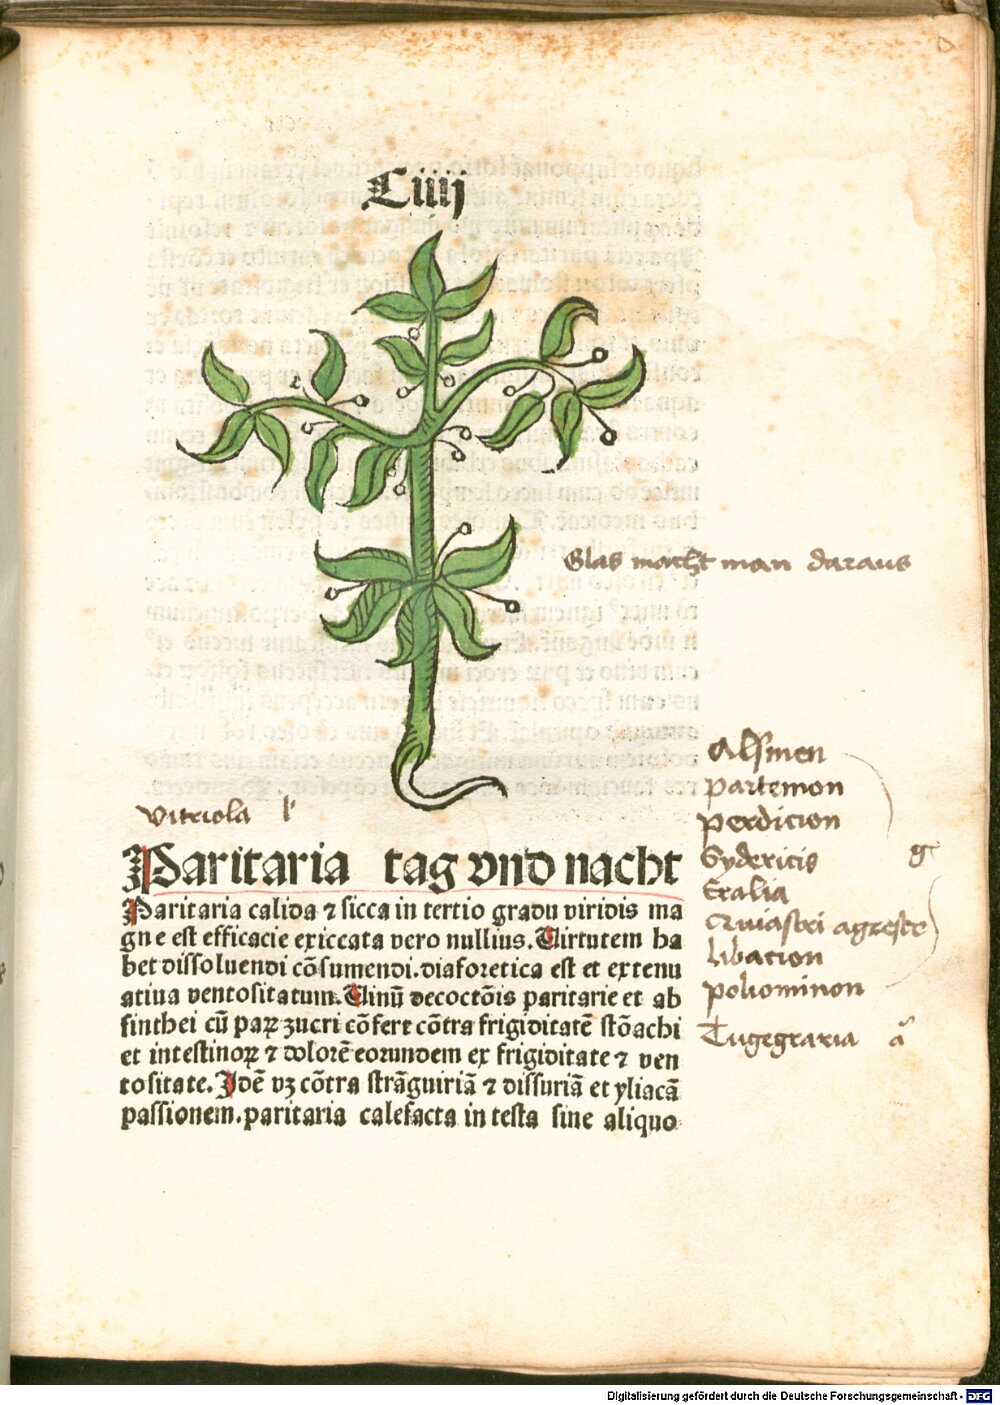 Ciiij
Glas macht man daraus
Alsinen
partemon
perdicion
Sydericis
Eralia
agreste
libacion
poliominon
Tugegraria
g
Vitriola
Paritaria tag vnd nacht
Paritaria calida ⁊ sicca in tertio gradu viridis ma
gne est efficacie exiccata vero nullius. Uirtutem ha
bet dissoluendi cōsumendi. diaforetica est et extenu
atiua ventositatum. Uinū decoctōis paritarie et ab
sinthei cū paꝝ zucri cōfert cōtra frigiditatē stōachi
et intestinoꝝ ⁊ dolorē eorundem ex frigiditate ⁊ ven
tositate. Idē vꝫ cōtra strāguiriā ⁊ dissuriā et yliacā
passionem. paritaria calefacta in testa sine aliquo
Digitalisierung gefördert durch die Deutsche Forschungsgemeinschaft - DFG